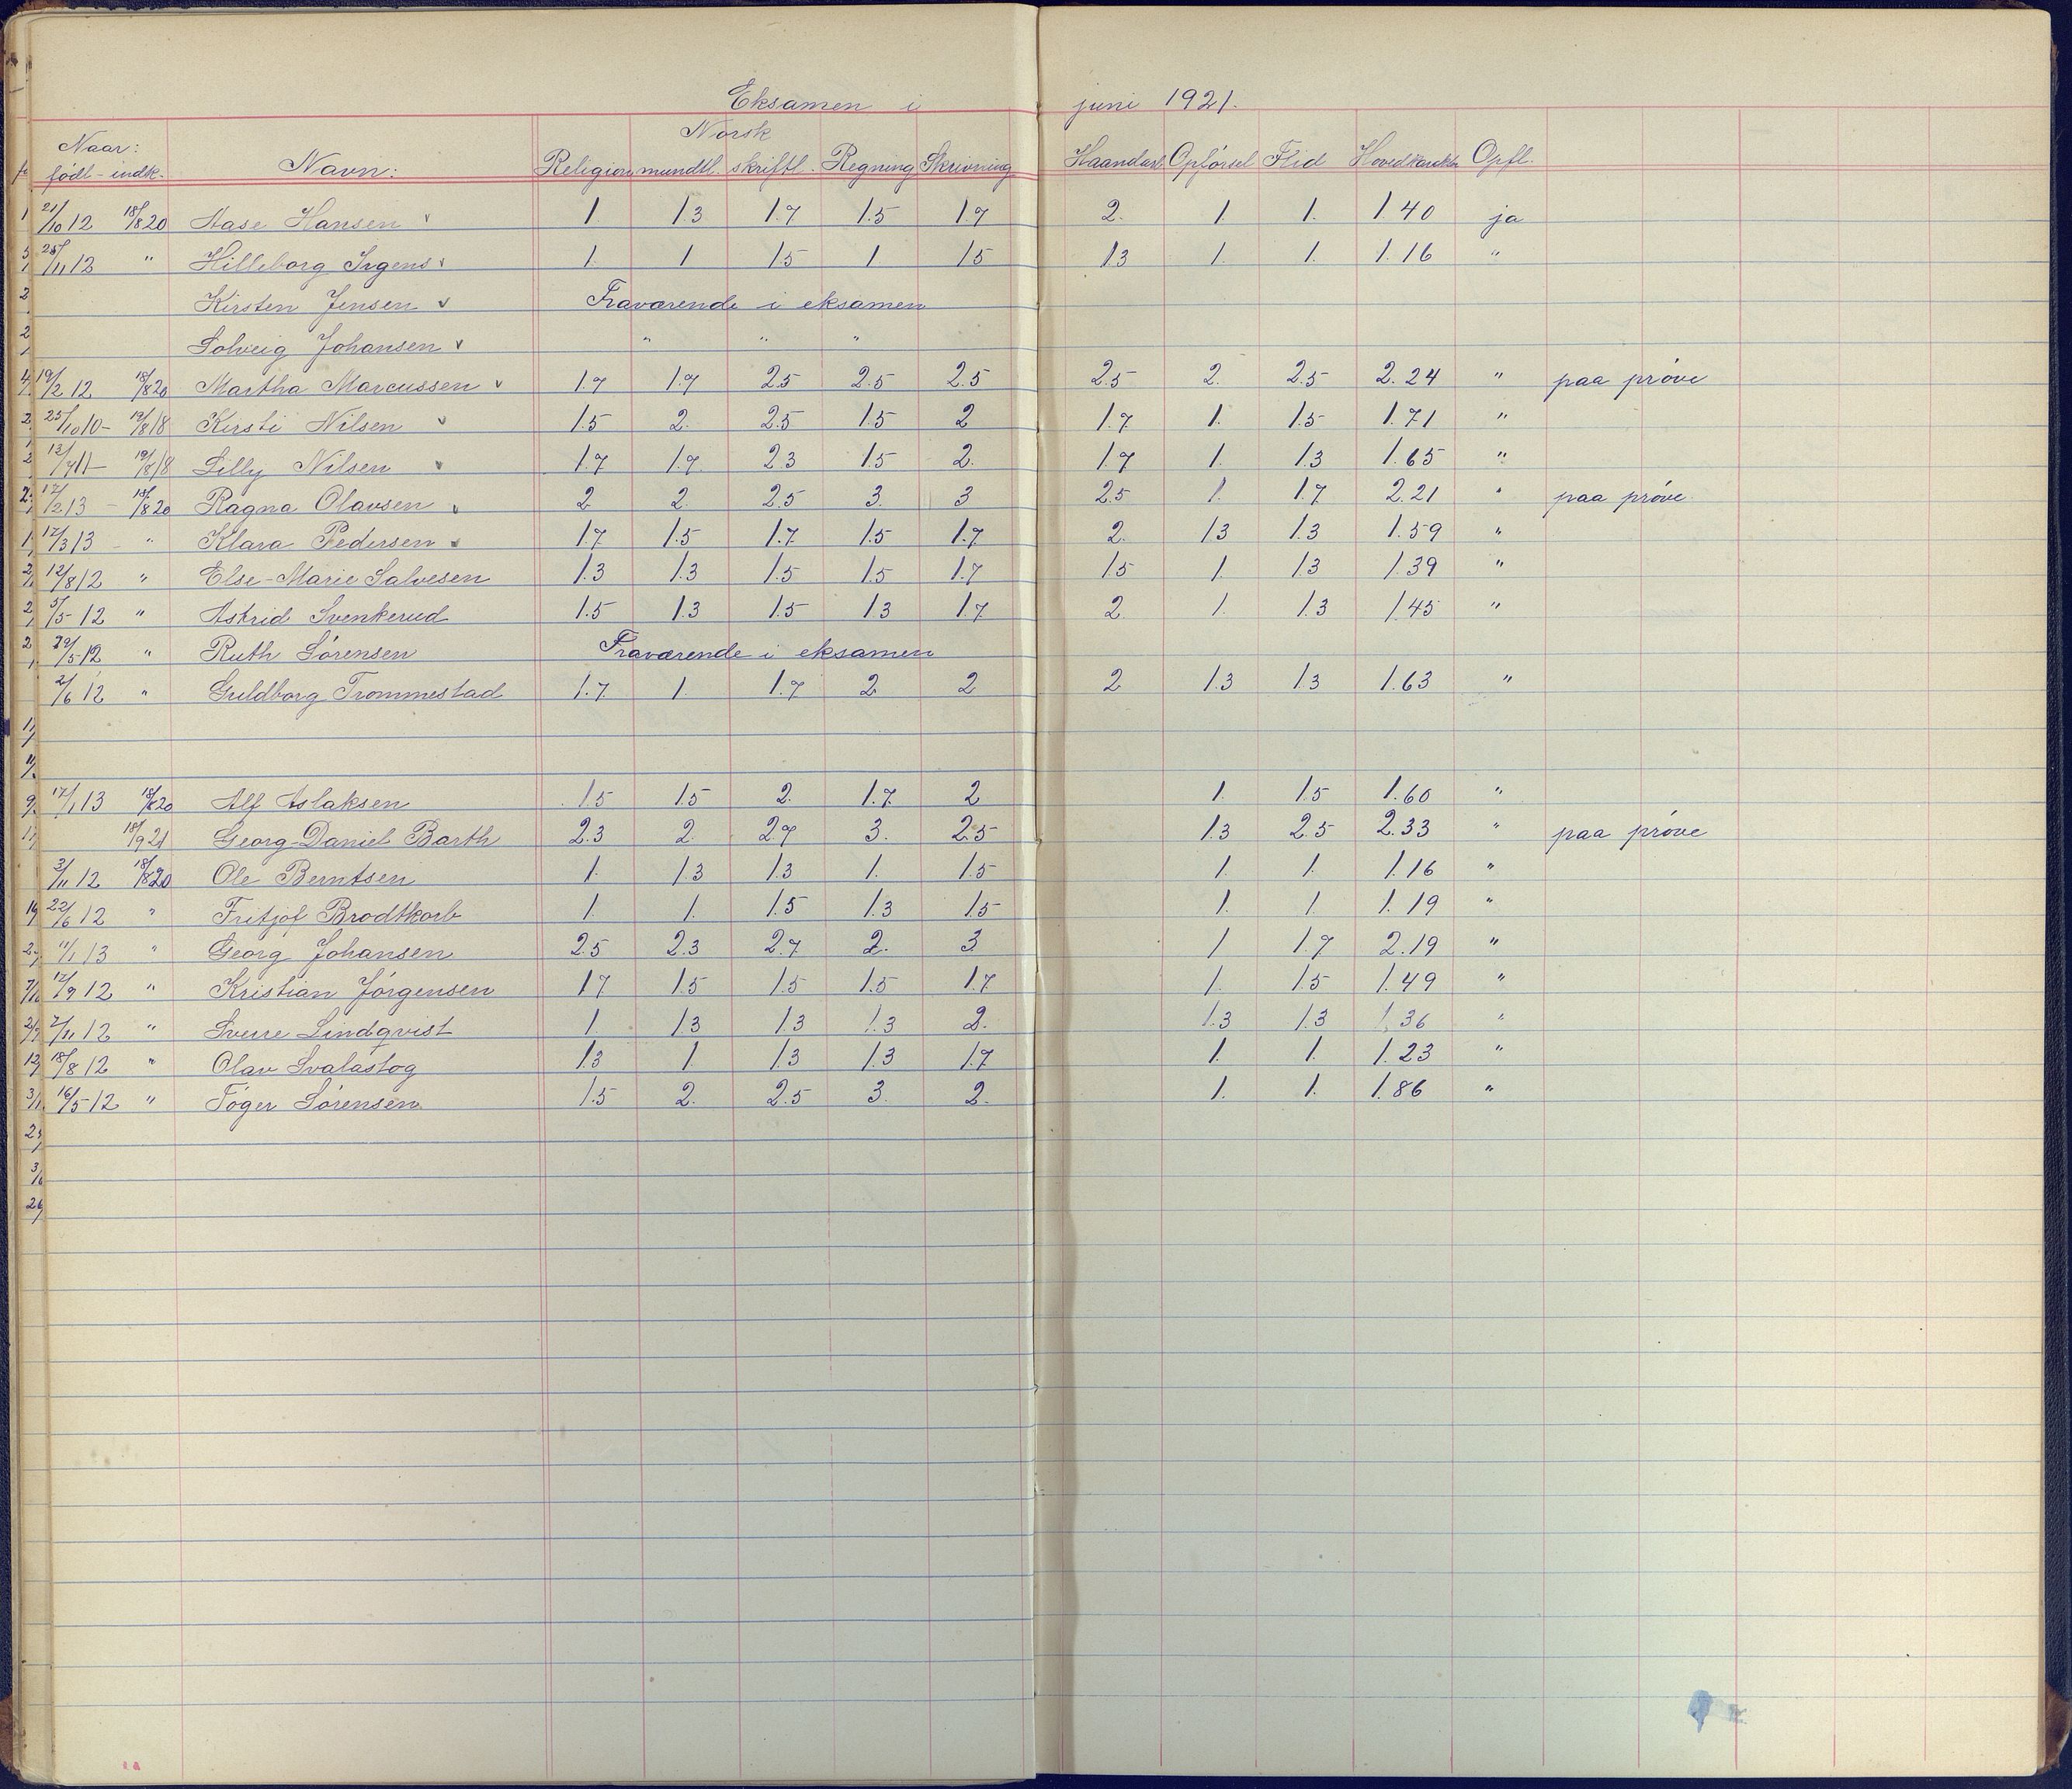 Eksamen i juni 1921.
Naar: Norsk
födt - indk. Navn: Religion mundtl. skriftl. Regning Skrivning Haandarb. Opförsel Flid Hovedkarakter Opfl.
21/10 12 18/8 20 Aase Hansen v 1 1.3 1.7 1.5 1.7 2. 1. 1. 1.40 ja
25/11 12 " Hilleborg Irgens v 1. 1 1.5 1 1.5 1.3 1. 1. 1.16 "
Kirsten Jensen v Fraværende i eksamen
Solveig Johansen v " " "
19/2 12 18/8 20 Martha Marcussen v 1.7 1.7 2.5 2.5 2.5 2.5 2. 2.5 2.24 " paa pröve
25/10 10 - 19/8 18 Kirsti Nilsen v 1.5 2. 2.5 1.5 2 1.7 1. 1.5 1.71 "
12/7 11 - 19/8 18 Lilly Nilsen v 1.7 1.7 2.3 1.5 2. 1.7 1. 1.3 1.65 "
17/2 13 - 18/8 20 Ragna Olavsen v 2 2. 2.5 3. 3 2.5 1. 1.7 2.21 " paa pröve
17/3 13 - " Klara Pedersen v 1.7 1.5 1.7 1.5 1.7 2. 1.3 1.3 1.59 "
12/8 12 " Else-Marie Salvesen 1.3 1.3 1.5 1.5 1.7 1.5 1. 1.3 1.39 "
5/5 12 " Astrid Svenkerud 1.5 1.3 1.5 1.3 1.7 2 1. 1.3 1.45 "
29/5 12 " Ruth Sörensen Fraværende i eksamen
2/6 12 " Guldborg Trommestad 1.7 1. 1.7 2 2 2 1.3 1.3 1.63 "
17/1 13 18/8 20 Alf Aslaksen 1.5 1.5 2. 1.7 2 1. 1.5 1.60 "
18/9 21 Georg-Daniel Barth 2.3 2. 2.7 3. 2.5 1.3 2.5 2.33 " paa pröve
3/11 12 18/8 20 Ole Berntsen 1. 1.3 1.3 1. 1.5 1. 1. 1.16 "
22/6 12 " Fritjof Brodtkorb 1. 1. 1.5 1.3 1.5 1. 1. 1.19 "
11/1 13 " Georg Johansen 2.5 2.3 2.7 2. 3 1 1.7 2.19 "
12/9 12 " Kristian Jörgensen 1.7 1.5 1.5 1.5 1.7 1. 1.5 1.49 "
2/11 12 " Sverre Lindqvist 1 1.3 1.3 1.3 2. 1.3 1.3 1.36 "
18/8 12 " Olav Svalastog 1.3 1 1.3 1.3 1.7 1. 1. 1.23 "
16/5 12 " Töger Sörensen 1.5 2. 2.5 3. 2. 1. 1. 1.86 "